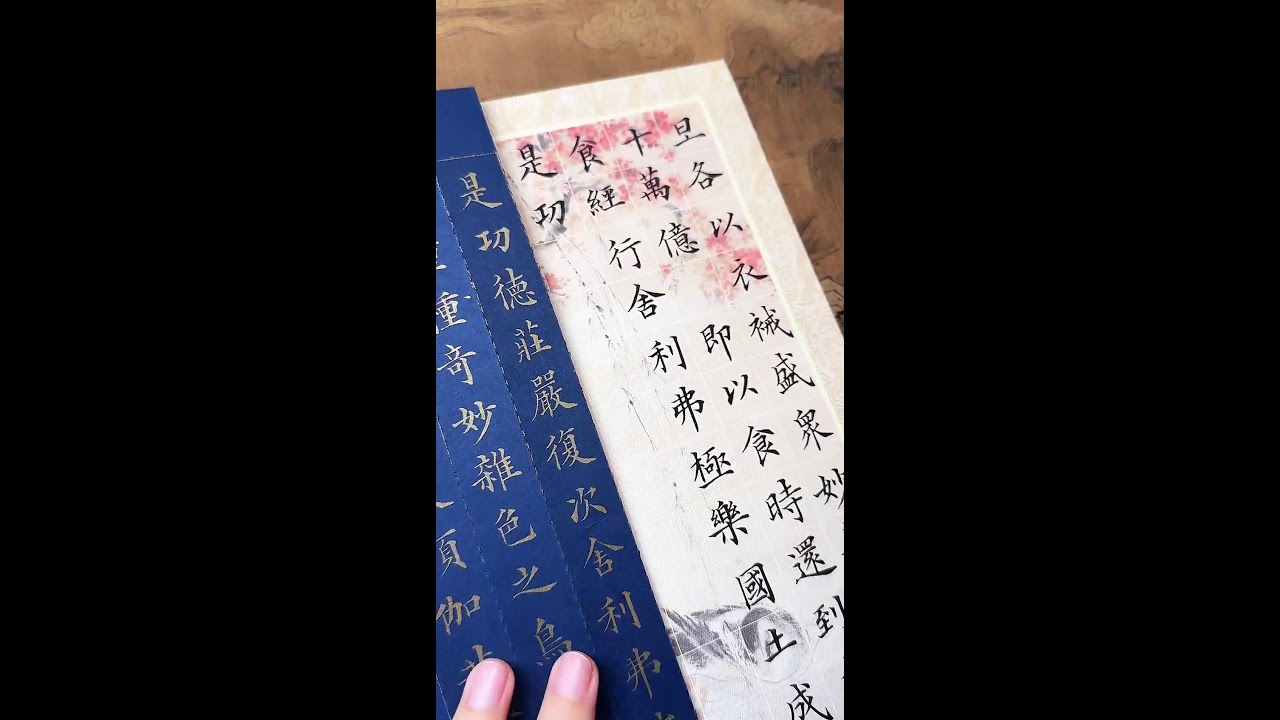 旦各以衣裓盛眾妙
十萬億 即以食時還到
食經行舍利弗極樂國土成
是功
是功德莊嚴復次舍利弗
種奇妙雜色之鳥
伽